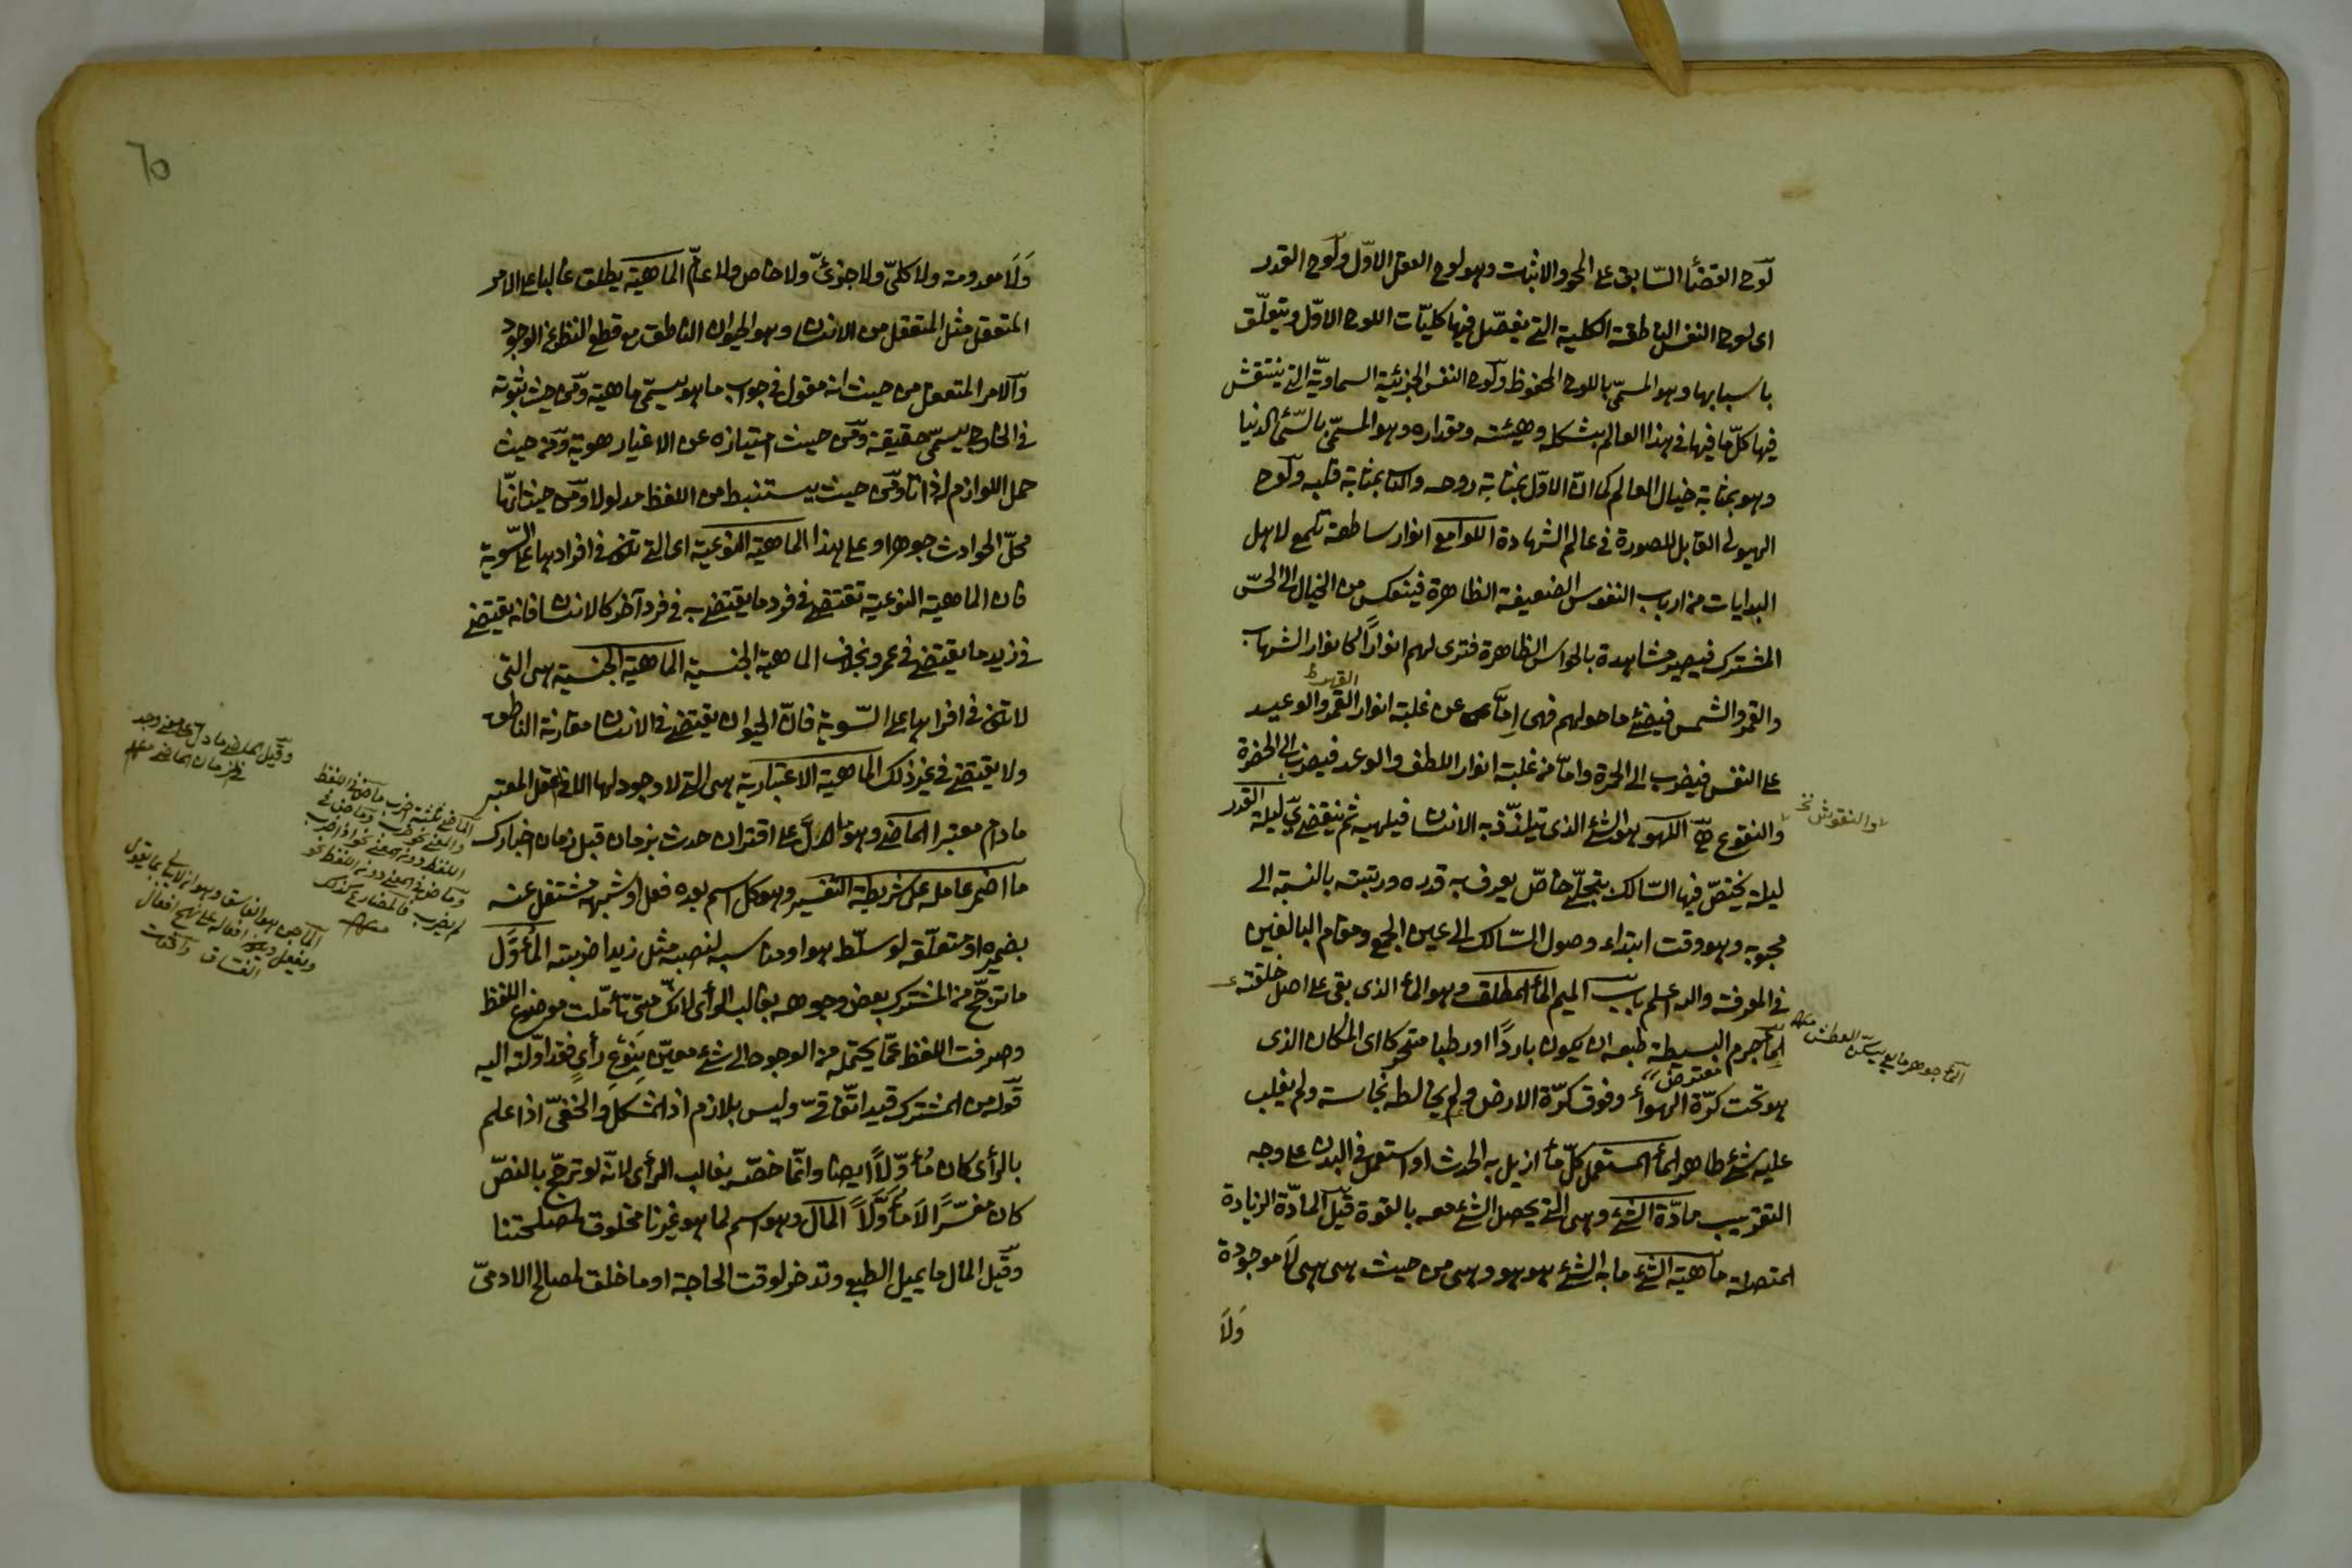 لوح القضأ السّابق على المحو والاثبات وهو لوح العقل الاوّل ولوح القدر
اى لوح النفس الناطقة الكلية التى يفصّل فيها كليّات اللوح الاوّل ويتعلّق
باسبابها وهو المسمّى باللوح المحفوظ ولوح النفس الجزئية السماويّة التى ينتقش
فيها كلّ ما فيها فى هذا العالم بشكله وهيئته ومقداره وهو المسمّى بالسّمأ الدنيا
وهو بمثابة خيال العالم كما انّ الاوّل بمثابة روحه والثا بمثابة قلبه ولوح
الهيولى القابل للصورة فى عالم الشهادة اللوامع انوار ساطعة تلمع لاهل
البدايات من ارباب النفوس الضعيفة الظاهرة فينعكس من الخيال الى الحسّ
المشترك فيصير مشاهدة بالحواس الظاهرة فترى لهم انوارًا كانوار الشهاب
والقمر والشمس فيضئ ما حولهم فهى إمّا عن غلبة انوار القهر والوعيد
على النفس فيضرب الى الحمرة وامّا من غلبة انوار اللطف والوعد فيضرب الى الخضرة
والنقوع اللهو هو الشئ الذى يتلذّذ به الانسان فيلهيه ثم ينقضى ليلة القدر
ليلة يختصّ فيها السّالك بتجلّى خاصّ يعرف به قدره ورتبته بالنسبة الى
محبوبه وهو وقت ابتداء وصول السّالك الى عين الجمع ومقام البالغين
فى المعرفة والله اعلم باب الميم المأ المطلق وهو المأ الذى بقى على اصل خلقته
المأ جرم البسيطة طبعه ان يكون باردًا او رطبا متحركا اى المكان الذى
هو تحت كرّة الهوأ وفوق كرّة الارض ولم يخالطه نجاسة ولم يغلب
عليه شئ طاهر المأ المستعمل كلّ مأ ازيل به الحدث او استعمل فى البدن على وجه
التقريب مادّة الشئ وهى التى يحصل الشئ معه بالقوة قيل المادّة الزيادة
المتصلة ماهية الشئ ما به الشئ هو هو وهى من حيث هى هى لا موجودة
ولا
والنقوش نخ
المأ جوهر مايع يسكّن العطش منه
ولا معدومة ولا كلىّ ولا جزئىّ ولا خاص ولا عامّ الماهية يطلق غالبا على الامر
المتعقل مثل المتعقل من الانسان وهو الحيوان الناطق مع قطع النظر عن الوجود
والامر المتعقل من حيث انه مقول فى جواب ما هو يسمّى ماهية ومن حيث ثبوته
فى الخارج يسمّى حقيقة ومن حيث امتيازه عن الاغيار هوية ومن حيث
حمل اللوازم له ذاتا ومن حيث يستنبط من اللفظ مدلولا ومن حيث انّها
محلّ الحوادث جوهرا وعلى هذا الماهية النوعية اى التى تكون فى افرادها على السّوية
فان الماهية النوعية تقتضى فى فرد ما يقتضيه فى فرد آخر كالانسان فانه يقتضى
فى زيد ما يقتضى فى عمرو بخلاف الماهية الجنسية الماهية الجنسية هى التى
لا تكون فى افرادها على السّوية فانّ الحيوان يقتضى فى الانسان مقارنة الناطق
ولا يقتضى فى غير ذلك الماهية الاعتبارية هى التى لا وجود لها الا فى عقل المعتبر
مادام معتبرا الماضى وهو ما دلّ على اقتران حدث بزمان قبل زمان اخبارك
ما اضمر عامله على شريطة التفسير وهو كل اسم بعده فعل او شبهه مشتغل عنه
بضميره او متعلّقه لو سلّط هو او مناسبه لنصبه مثل زيدا ضربته المأوّل
ما ترجّح من المشترك بعض وجوهه بغالب الرأى لانك متى تأمّلت موضوع اللفظ
وصرفت اللفظ عمّا يحتمله من الوجوه الى شئ معيّن بنوع رأى فقد اوّلته اليه
قوله من المشترك قيد اتّفاقىّ وليس بلازم اذ المشكل والخفىّ اذا علم
بالرأى كان مأوّلاً ايضا وانّما خصّه بغالب الرأى لانّه لو ترجّح بالنصّ
كان مفسّرًا لا مأوّلاً المال وهو اسم لما هو غيرنا مخلوق لمصلحتنا
وقيل المال ما يميل الطبع وتدخر لوقت الحاجة او ما خلق لمصالح الادمىّ
وقيل الماضى ما دل على معنى وجد
فى الزمان الماضى منه